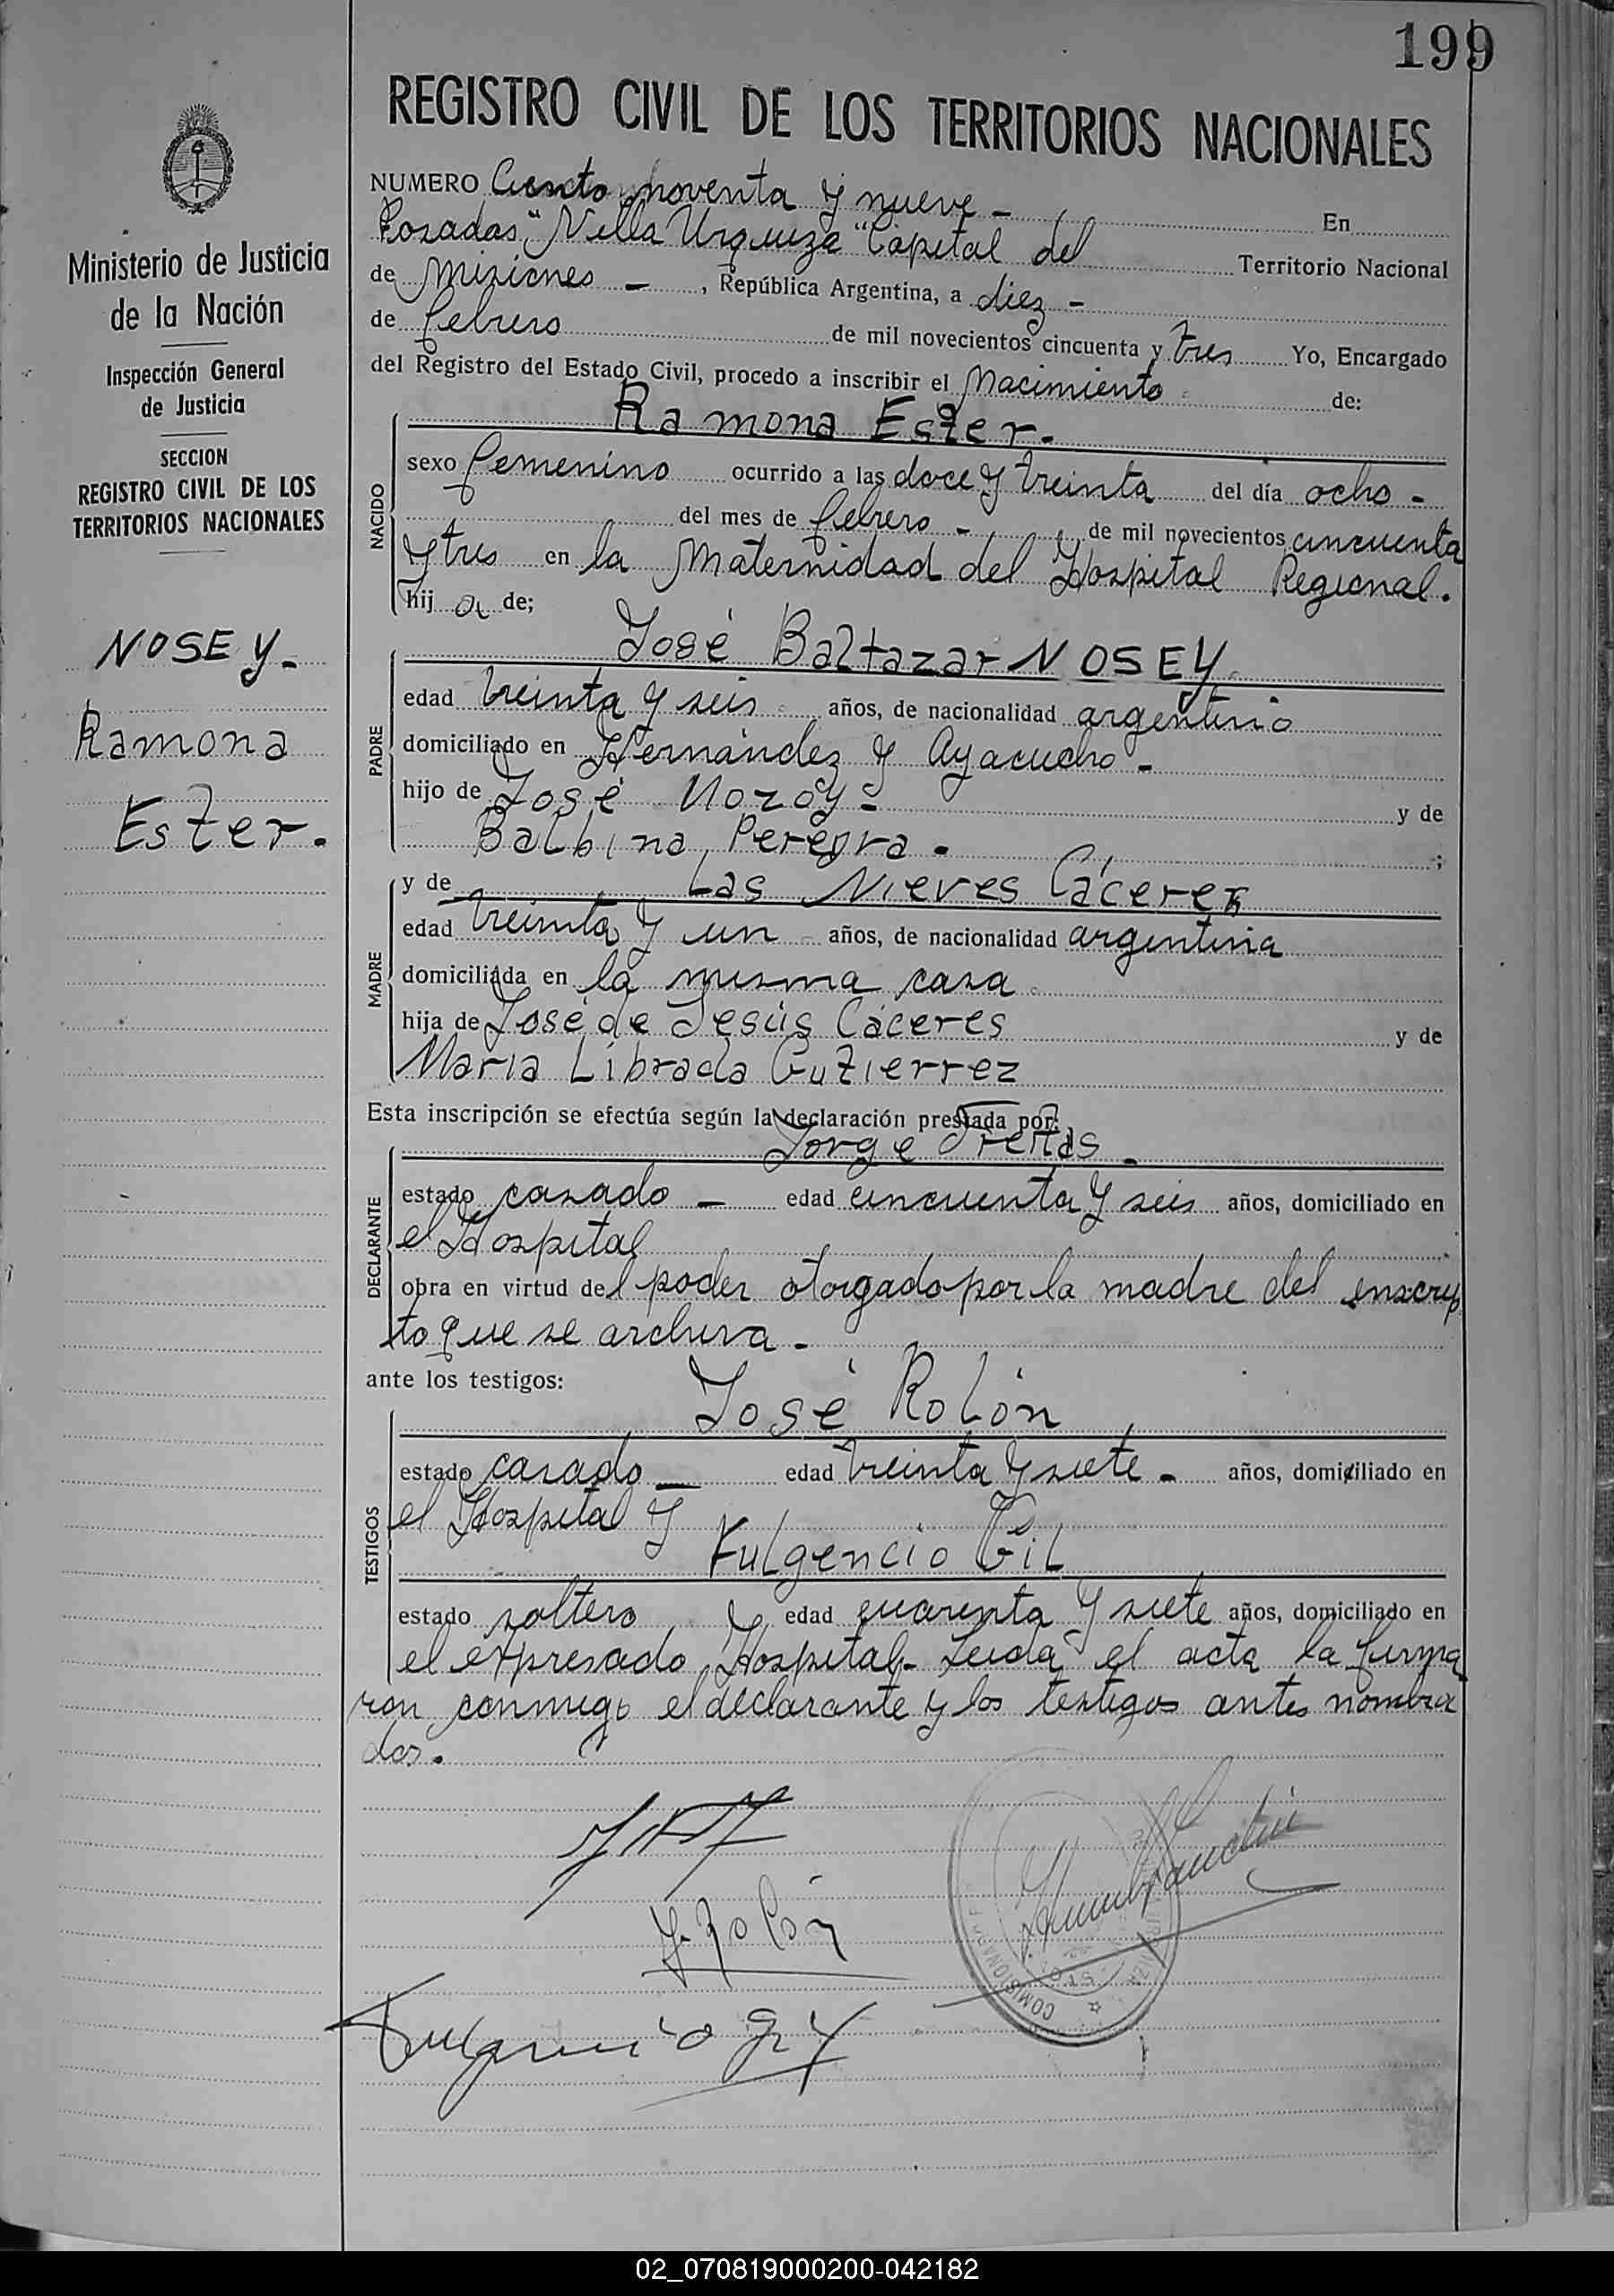 199
REGISTRO CIVIL DE LOS TERRITORIOS NACIONALES
Ministerio de Justicia
de la Nación
Inspección General
de Justicia
SECCION
REGISTRO CIVIL DE LOS
TERRITORIOS NACIONALES
NOSEY-
Ramona
Ester.
NUMERO Ciento noventa y nueve - En
Posadas "Villa Urquiza" Capital del Territorio Nacional
de Misiones - , República Argentina, a diez -
de febrero de mil novecientos cincuenta y tres Yo, Encargado
del Registro del Estado Civil, procedo a inscribir el Nacimiento de:
Ramona Ester.
NACIDO
sexo femenino ocurrido a las doce y treinta del día ocho -
del mes de febrero - de mil novecientos cincuenta
y tres en la Maternidad del Hospital Regional.
hij a de;
José Baltazar NOSEY
PADRE
edad treinta y seis años, de nacionalidad argentino
domiciliado en Hernández y Ayacucho -
hijo de José y de
Balbina ;
y de Las Nieves Cáceres
MADRE
edad treinta y un años, de nacionalidad argentina
domiciliada en la misma casa
hija de José de Jesús Cáceres y de
María Librada Gutierrez
Esta inscripción se efectúa según la declaración prestada por:
Jorge -
DECLARANTE
estado casado - edad cincuenta y seis años, domiciliado en
el Hospital
obra en virtud del poder otorgado por la madre del inscrip
to que se archiva -
ante los testigos:
José Rolón
TESTIGOS
estado casado - edad treinta y siete - años, domiciliado en
el Hospital y
Fulgencio Gil
estado soltero y edad cuarenta y siete años, domiciliado en
el expresado Hospital - Leída el acta la firma
ron conmigo el declarante y los testigos antes nombra
dos.
J. Rolón
Fulgencio Gil
02_070819000200-042182